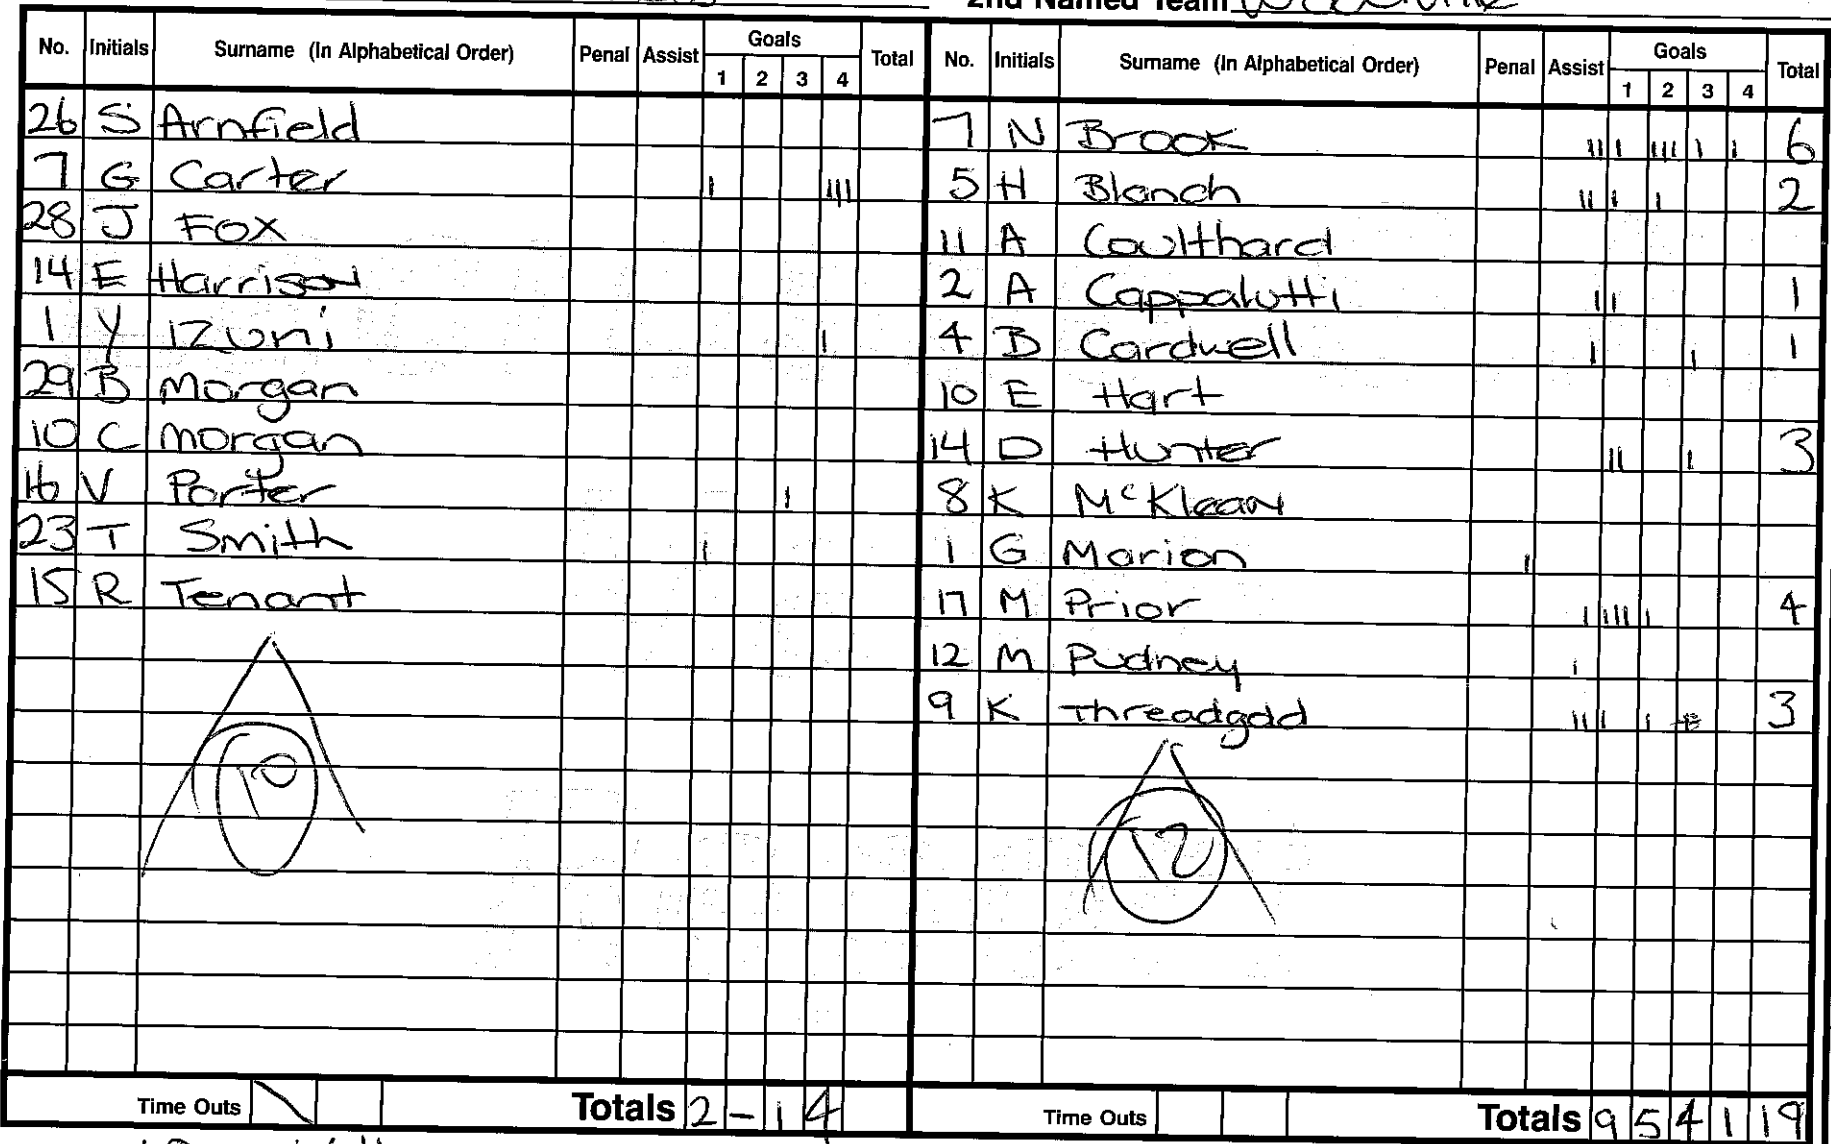 2nd Named Team
No. Initials Surname (In Alphabetical Order) Penal Assist Goals 1 2 3 4 Total
26 S Arnfield
7 G Carter
28 J Fox
14 E Harrison
1 Y IZUni
29 B Morgan
10 C Morgan
16 V Porter
23 T Smith
15 R Tenant
10
Time Outs Totals 2 - 1 4
No. Initials Surname (In Alphabetical Order) Penal Assist Goals 1 2 3 4 Total
7 N Brook 6
5 H Blanch 2
11 A Coulthard
2 A Cappalutti 1
4 B Cardwell 1
10 E Hart
14 D Hunter 3
8 K McKlean
1 G Marion
17 M Prior 4
12 M Pudney
9 K Threadgold 3
12
Time Outs Totals 9 5 4 1 19